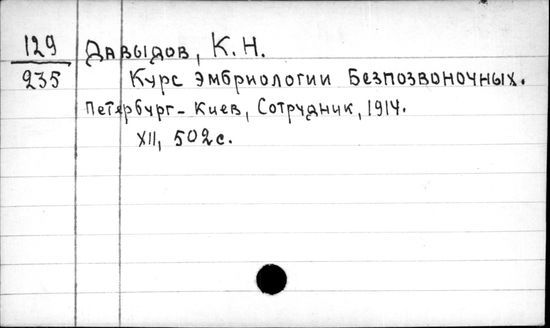 129 Давыдов, К. Н.
235 Курс эмбриологии Безпозвоночных.
Петербург - Киев, Сотрудник, 1914.
XII, 502 с.